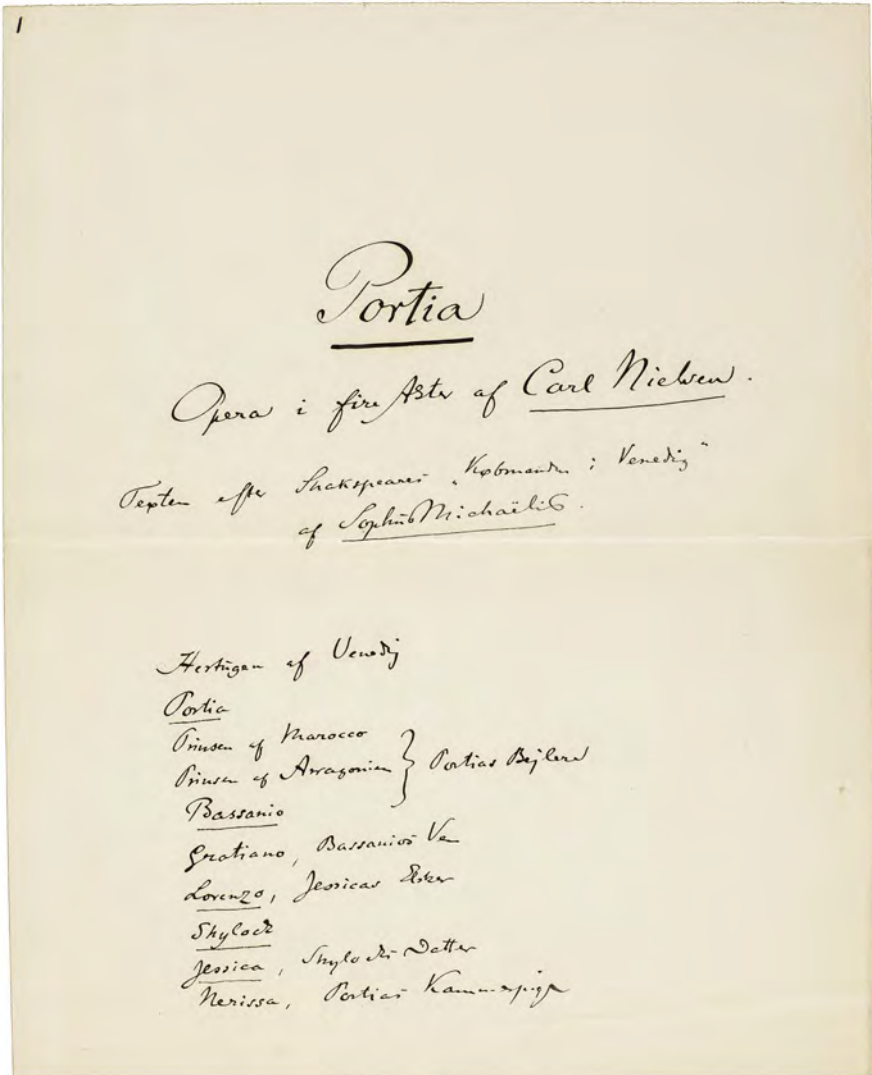 1
Portia
Opera i fire Akter af Carl Nielsen.
Texten efter Shakspeares „Købmanden i Venedig“
af Sophus Michaëlis.
Hertugen af Venedig
Portia
Prinsen af Marocco
Prinsen af Arragonien } Portias Bejlere
Bassanio
Gratiano, Bassanios Ven
Lorenzo, Jessicas Elsker
Shylock
Jessica, Shylocks Datter
Nerissa, Portias Kammerpige